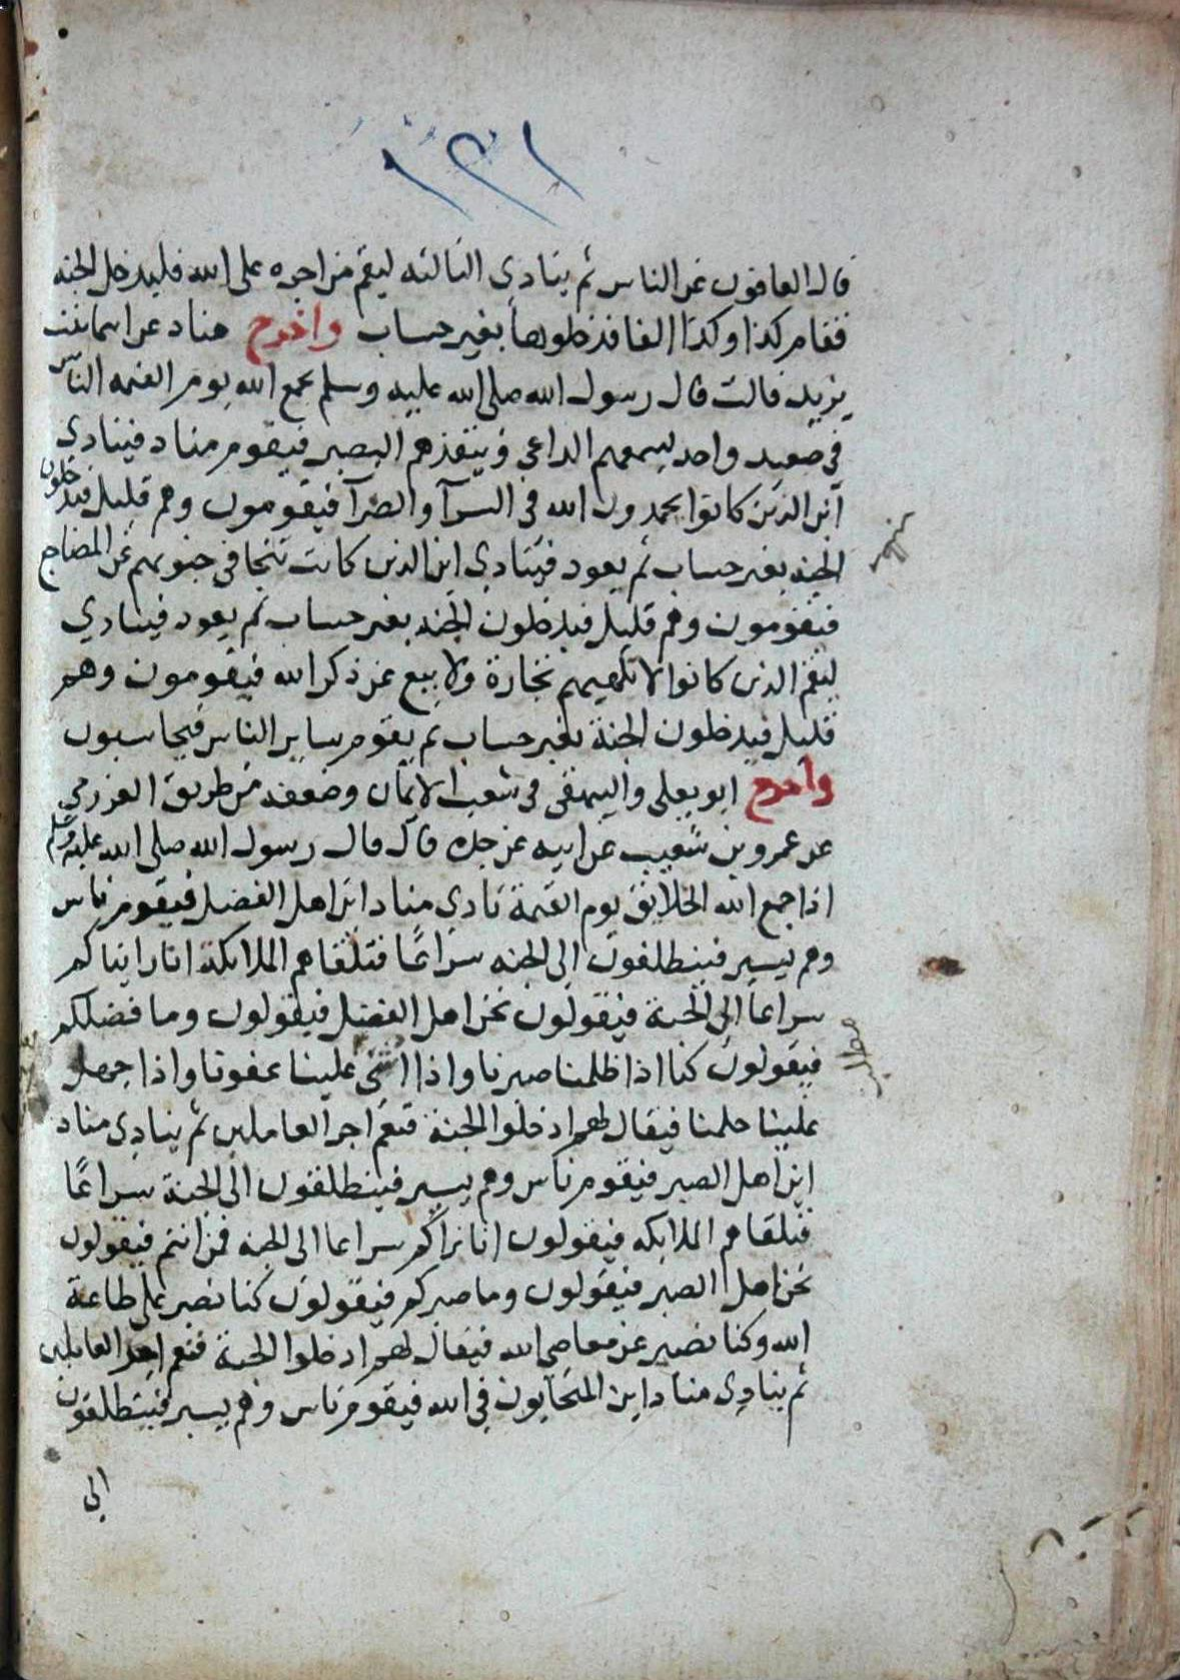 ١٣١
قال العافون عن الناس ثم ينادي الثالثه ليقم من اجره على الله فليدخل الجنه
فقام كذا وكذا الفا فدخلوها بغير حساب واخرج هناد عن اسما بنت
يزيد قالت قال رسول الله صلى الله عليه وسلم يجمع الله يوم القيمه الناس
في صعيد واحد يسمعهم الداعي وينفذهم البصر فيقوم مناد فينادي
اين الذين كانوا يحمدون الله في السرآ والضرآ فيقومون وهم قليل فيدخلون
الجنه بغير حساب ثم يعود فينادي اين الذين كانت تتجافى جنوبهم عن المضاجع
فيقومون وهم قليل فيدخلون الجنه بغير حساب ثم يعود فينادي
ليقم الذين كانوا لا تلهيهم تجارة ولا بيع عن ذكر الله فيقومون وهم
قليل فيدخلون الجنة بغير حساب ثم يقوم ساير الناس فيحاسبون
واخرج ابو يعلى والبيهقي في شعب الايمان وضعفه من طريق العزرمي
عن عمرو بن شعيب عن ابيه عن جده قال قال رسول الله صلى الله عليه وسلم
اذا جمع الله الخلايق يوم القيمة نادى مناد اين اهل الفضل فيقوم ناس
وهم يسير فينطلقون الى الجنه سراعًا فتلقاهم الملايكة انا رايناكم
سراعا الى الجنة فيقولون نحن اهل الفضل فيقولون وما فضلكم
فيقولون كنا اذا ظلمنا صبرنا واذا اسى علينا عفونا واذا جهل
علينا حلمنا فيقال لهم ادخلوا الجنة فنعم اجر العاملين ثم ينادي مناد
اين اهل الصبر فيقوم ناس وهم يسير فينطلقون الى الجنة سراعًا
فتلقاهم الملايكه فيقولون انا نراكم سراعا الى الجنه فمن انتم فيقولون
نحن اهل الصبر فيقولون وما صبركم فيقولون كنا نصبر على طاعة
الله وكنا نصبر عن معاصي الله فيقال لهم ادخلوا الجنة فنعم اجر العاملين
ثم ينادي مناد اين المتحابون في الله فيقوم ناس وهم يسير فينطلقون
الى